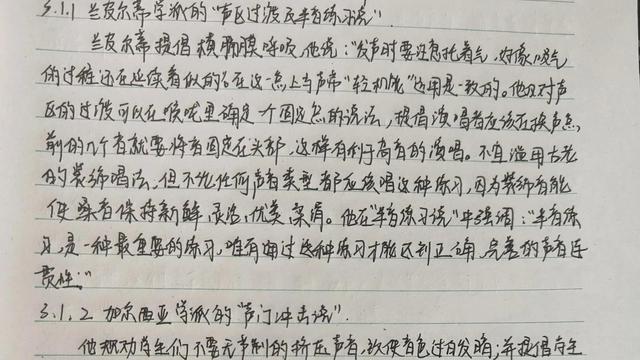 3.1.1 兰皮尔蒂学派的“声区过渡及半音练习说”.
兰皮尔蒂提倡横膈膜呼吸,他说:“发声时要注意托着气,好像吸气
的过程还在延续着似的。在这一点上与声带“轻机能”运用是一致的。他反对声
区的过渡可以在喉咙里确定一个固定点的说法,提倡演唱者应该在换声点
前的几个音就要将音固定在头部,这样有利于高音的演唱。不宜滥用古老
的装饰唱法,但不论任何声音类型都应该唱这种练习,因为装饰音能
使嗓音保持新鲜,灵活,优美,柔润。他在“半音练习说”中强调:“半音练
习,是一种最重要的练习,唯有通过这种练习才能达到正确,完善的声音连
贯性.”
3.1.2 加尔西亚学派的“声门冲击说”.
他极力劝学生们不要无节制的挤压声音,致使音色过白发暗;并提倡学生